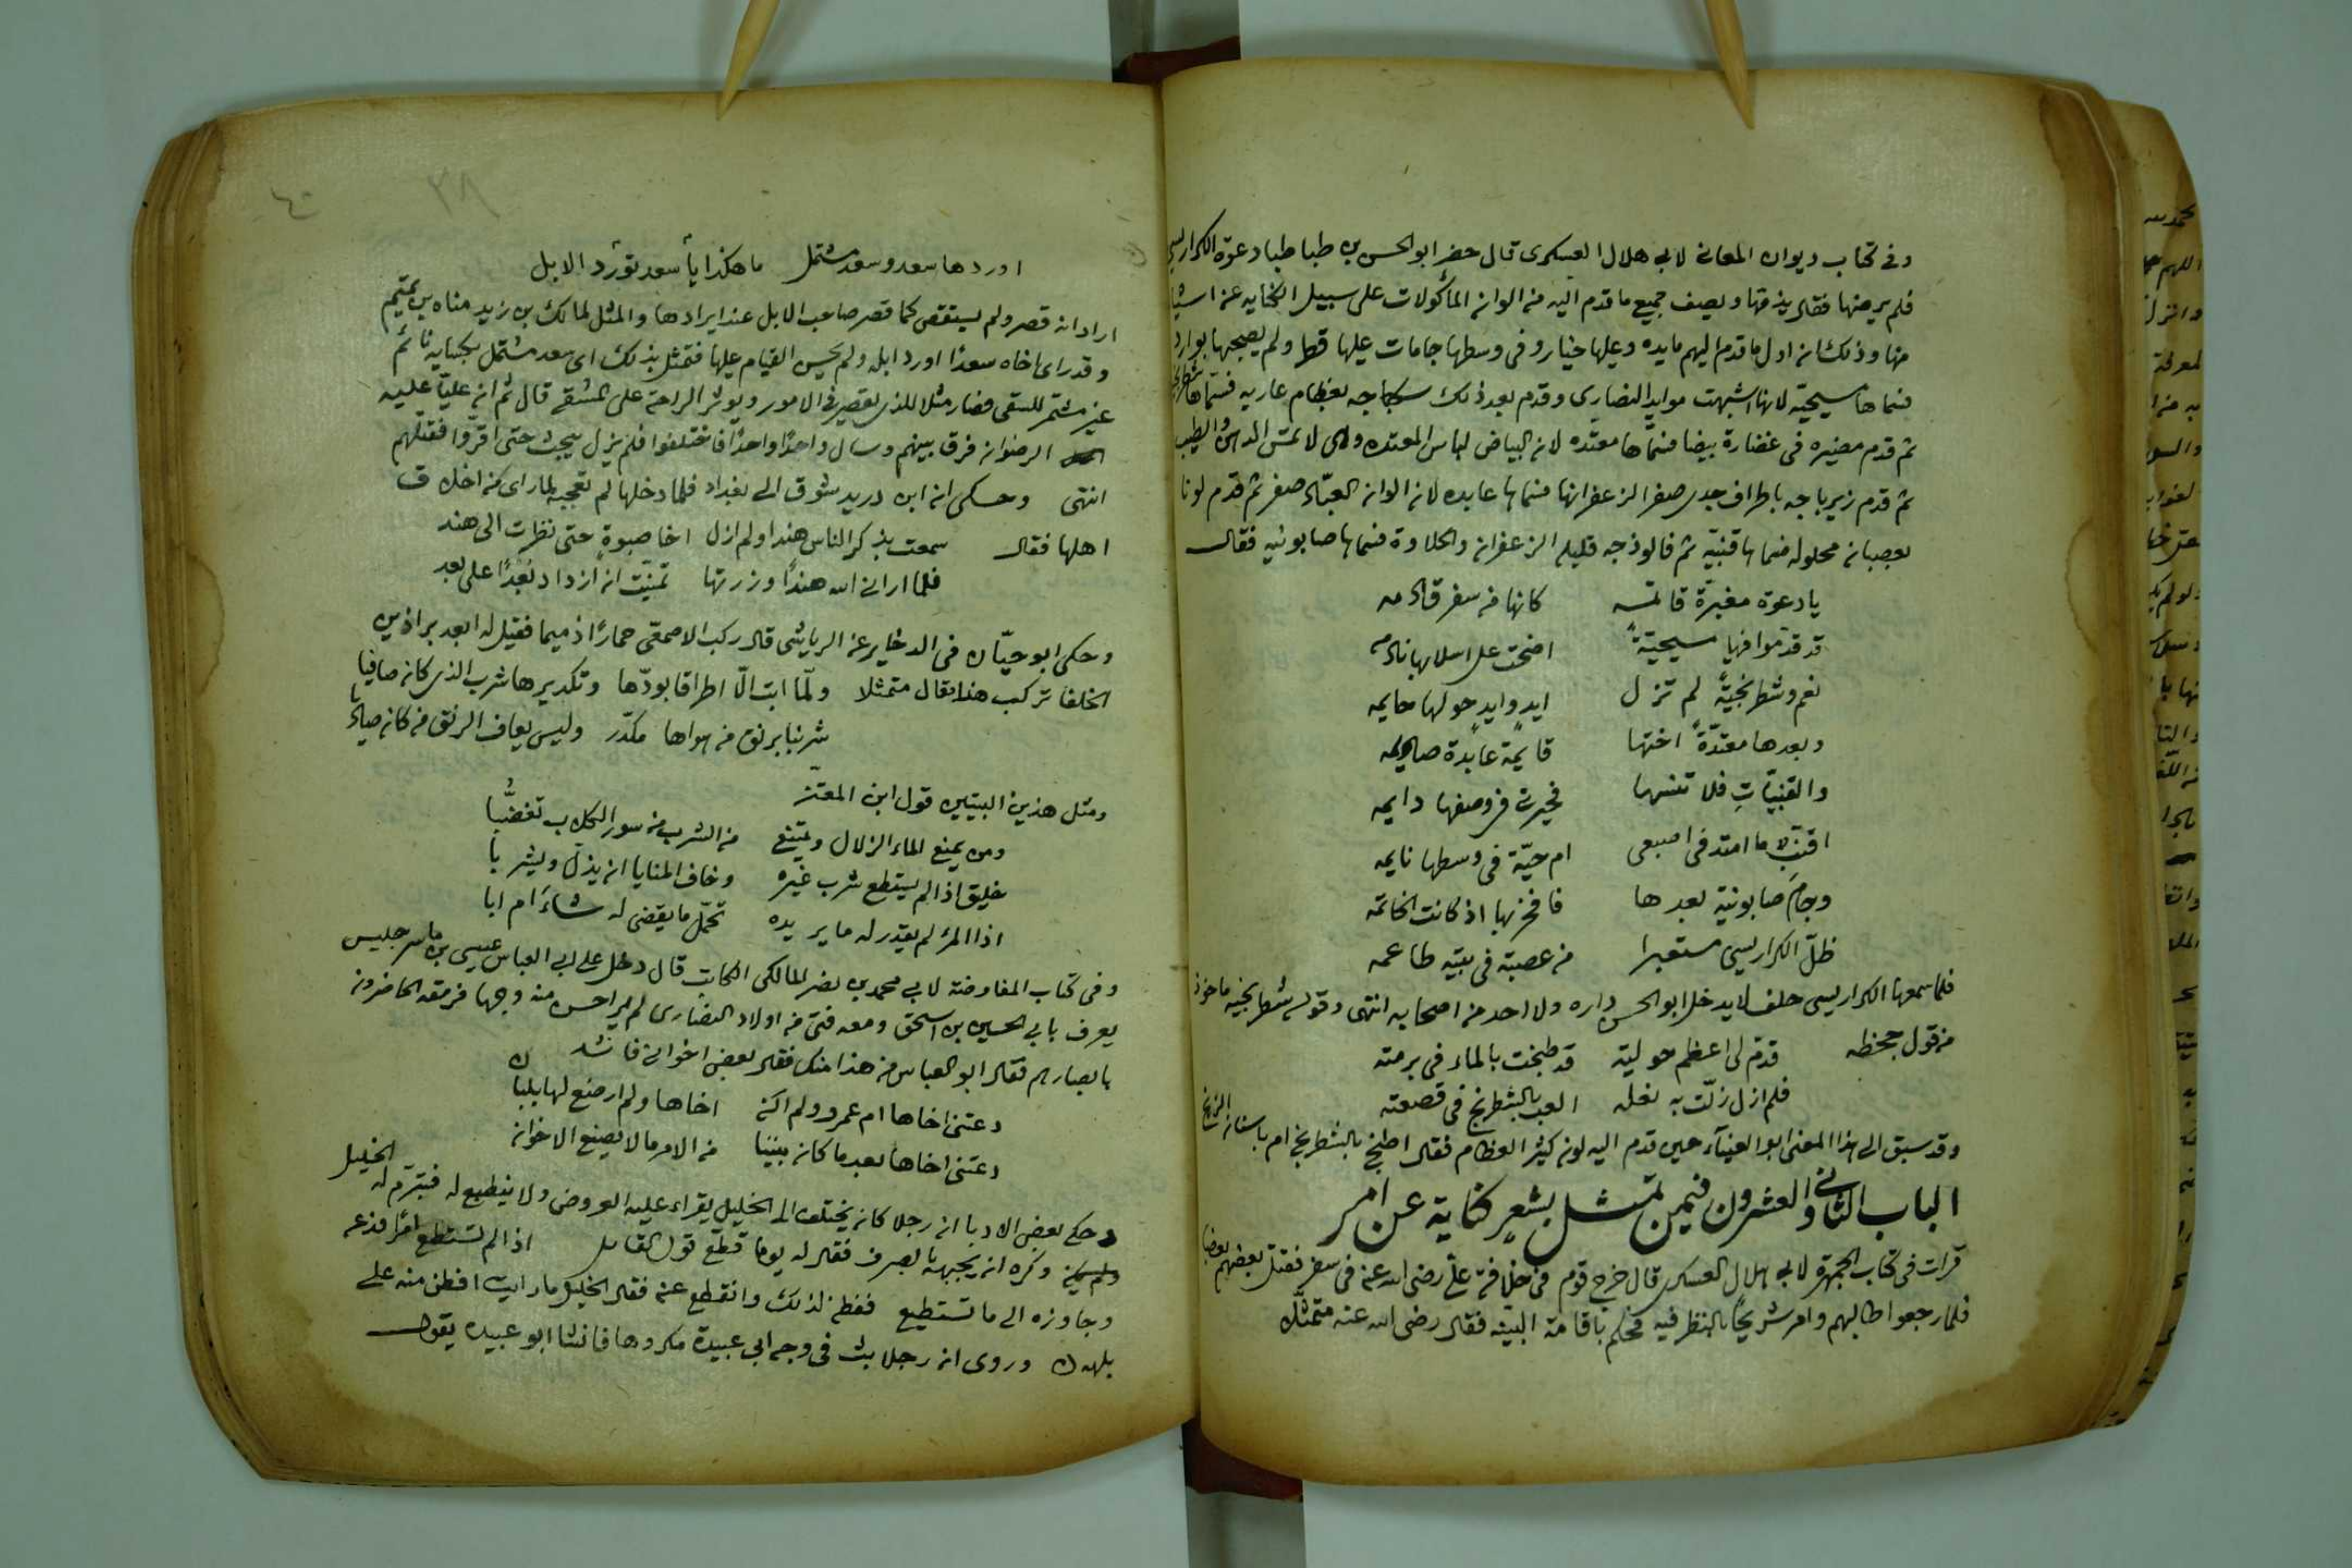 وفى كتاب ديوان المعانى لابى هلال العسكرى قال حضر ابو الحسن بن طباطبا دعوة الكراريسى
فلم يرضها فقال يذمها ويصف جميع ما قدم اليه من الوان المأكولات على سبيل الكناية عن اشيا
منها وذلك انه اول ما قدم اليهم مايده وعليها خيار وفى وسطها جامات عليها قطر ولم يصبحها بوارد
فسماها مسيحيّه لانها اشبهت موايد النصارى وقدم بعد ذلك سكباجه بعظام عاريه فسماها شطرنجية
ثم قدم مضيره فى غضارة بيضا فسمّاها معتدّه لان البياض لباس المعتده وهى لا تمس الدهن والطيب
ثم قدم زيرباجه باطراف جدى صفر الزعفرانها فسماها عابده لان الوان العبّاد صفر ثم قدم لونا
بعصبان محلوله فسماها قنبيّه ثم فالوذجه قليله الزعفران والحلاوة فسماها صابونيه فقال
يا دعوة مغبرّة قاتمه كانها من سفر قادمه
قد قدّموا فيها مسيحيّةً اضحت على اسلابها نادمه
نعم وشطرنجيّةً لم تزل ايدٍ وايدٍ حولها حايمه
وبعدها معتدّةً اختها قايمة عابدة صايمه
والقنبيّاتِ فلا تنسها فحيرت فى وصفها دايمه
اقنّب ما امتد فى اصبعى ام حيّة فى وسطها نايمه
وجام صابونية بعدها فافخر بها اذ كانت الخاتمه
ظلّ الكراريسى مستعبرا من عصبته فى بيته طاعمه
فلما سمعها الكراريسى حلف لا يدخل ابو الحسن داره ولا احد من اصحابه انتهى وقوله شطرنجيه ماخوذ
من قول جحظه قدّم لى اعظم حوليّة قد طبخت بالماء فى برمته
فلم ازل زلّت به نعله العب بالشطرنج فى قصعته
وقد سبق الى هذا المعنى ابو العيناء حين قدم اليه لون كثير العظام فقال اطبخ بالشطرنج ام باسنان الزنج
الباب الثانى والعشرون فيمن تمثل بشعر كناية عن امر
قرات فى كتاب الجمهرة لابى هلال العسكرى قال خرج قوم فى خلافة على رضى الله عنه فى سفر فقتل بعضهم بعضا
فلما رجعوا طالبهم وامر شريحًا بالنظر فيه فحكم باقامة البينه فقال رضى الله عنه متمثّلا
٣٨ ٤٠
اوردها سعد وسعد مشتمل ما هكذا يا سعد تورد الابل
اراد انه قصر ولم يستقص كما قصر صاحب الابل عند ايرادها والمثل لمالك بن زيد مناه بن تميم
وقد راى اخاه سعدًا اورد ابله ولم يحسن القيام عليها فتمثل بذلك اى سعد مشتمل بكسايه نائم
غير مشتمر للسقى فصار مثلا للذى يقصر فى الامور ويوثر الراحة على المشقه قال ثم ان عليّا عليه
الرضوان فرق بينهم وسال واحدًا واحدًا فاختلفوا فلم يزل يبحث حتى اقرّوا فقتلهم
انتهى وحكى ان ابن دريد شوق الى بغداد فلما دخلها لم تعجبه لما راى من اخلاق
اهلها فقال سمعت بذكر الناس هندا ولم ازل اخا صبوةٍ حتى نظرت الى هند
فلما ارانى الله هندًا وزرتها تمنيّت ان ازداد بُعدًا على بعد
وحكى ابو حيّان فى الدخاير عن الرياشى قال ركب الاصمعى حمارًا ذميما فقيل له ابعد براذين
الخلفا تركب هذا فقال متمثلا ولمّا ابت الّا اطراقا بودّها وتكديرها شرب الذى كان صافيا
شربنا برنق من هواها مكدّر وليس يعاف الرنق من كان صاديا
ومثل هذين البيتين قول ابن المعتز
ومن يمنع الماء الزلال ويمتنع من الشرب من سور الكلاب تغضّبا
خليق اذا لم يستطع شرب غيره وخاف المنايا ان يذل ويشربا
اذا المرء لم يقدر له ما يريده تحمّل ما يقضى له شاءَ ام ابا
وفى كتاب المفاوضة لابى محمد بن نصر المالكى الكاتب قال دخل على ابى العباس عيسى بن ماسرجيس
يعرف بابى الحسين بن اسحق ومعه فتى من اولاد النصارى لم ير احسن منه وجها فرمقه الحاضرون
بابصارهم فقال ابو العباس من هذا منك فقال بعض اخوانى فانشد
دعتنى اخاها ام عمرو ولم اكن اخاها ولم ارضع لها بلبان
دعتنى اخاها بعدما كان بيننا من الامر ما لا يصنع الاخوان
وحكى بعض الادبا ان رجلا كان يختلف الى الخليل يقراء عليه العروض ولا ينطبع له فتبرّم له الخليل
وكره ان يجبهه بالصرف فقال له يوما قطّع قول القايل اذا لم تستطع امرًا فدعه
وجاوزه الى ما تستطيع ففطن لذلك وانقطع عنه فقال الخليل ما رايت افطن منه على
بلهه وروى ان رجلا بث فى وجه ابى عبيدة مكروها فانشا ابو عبيده يقول